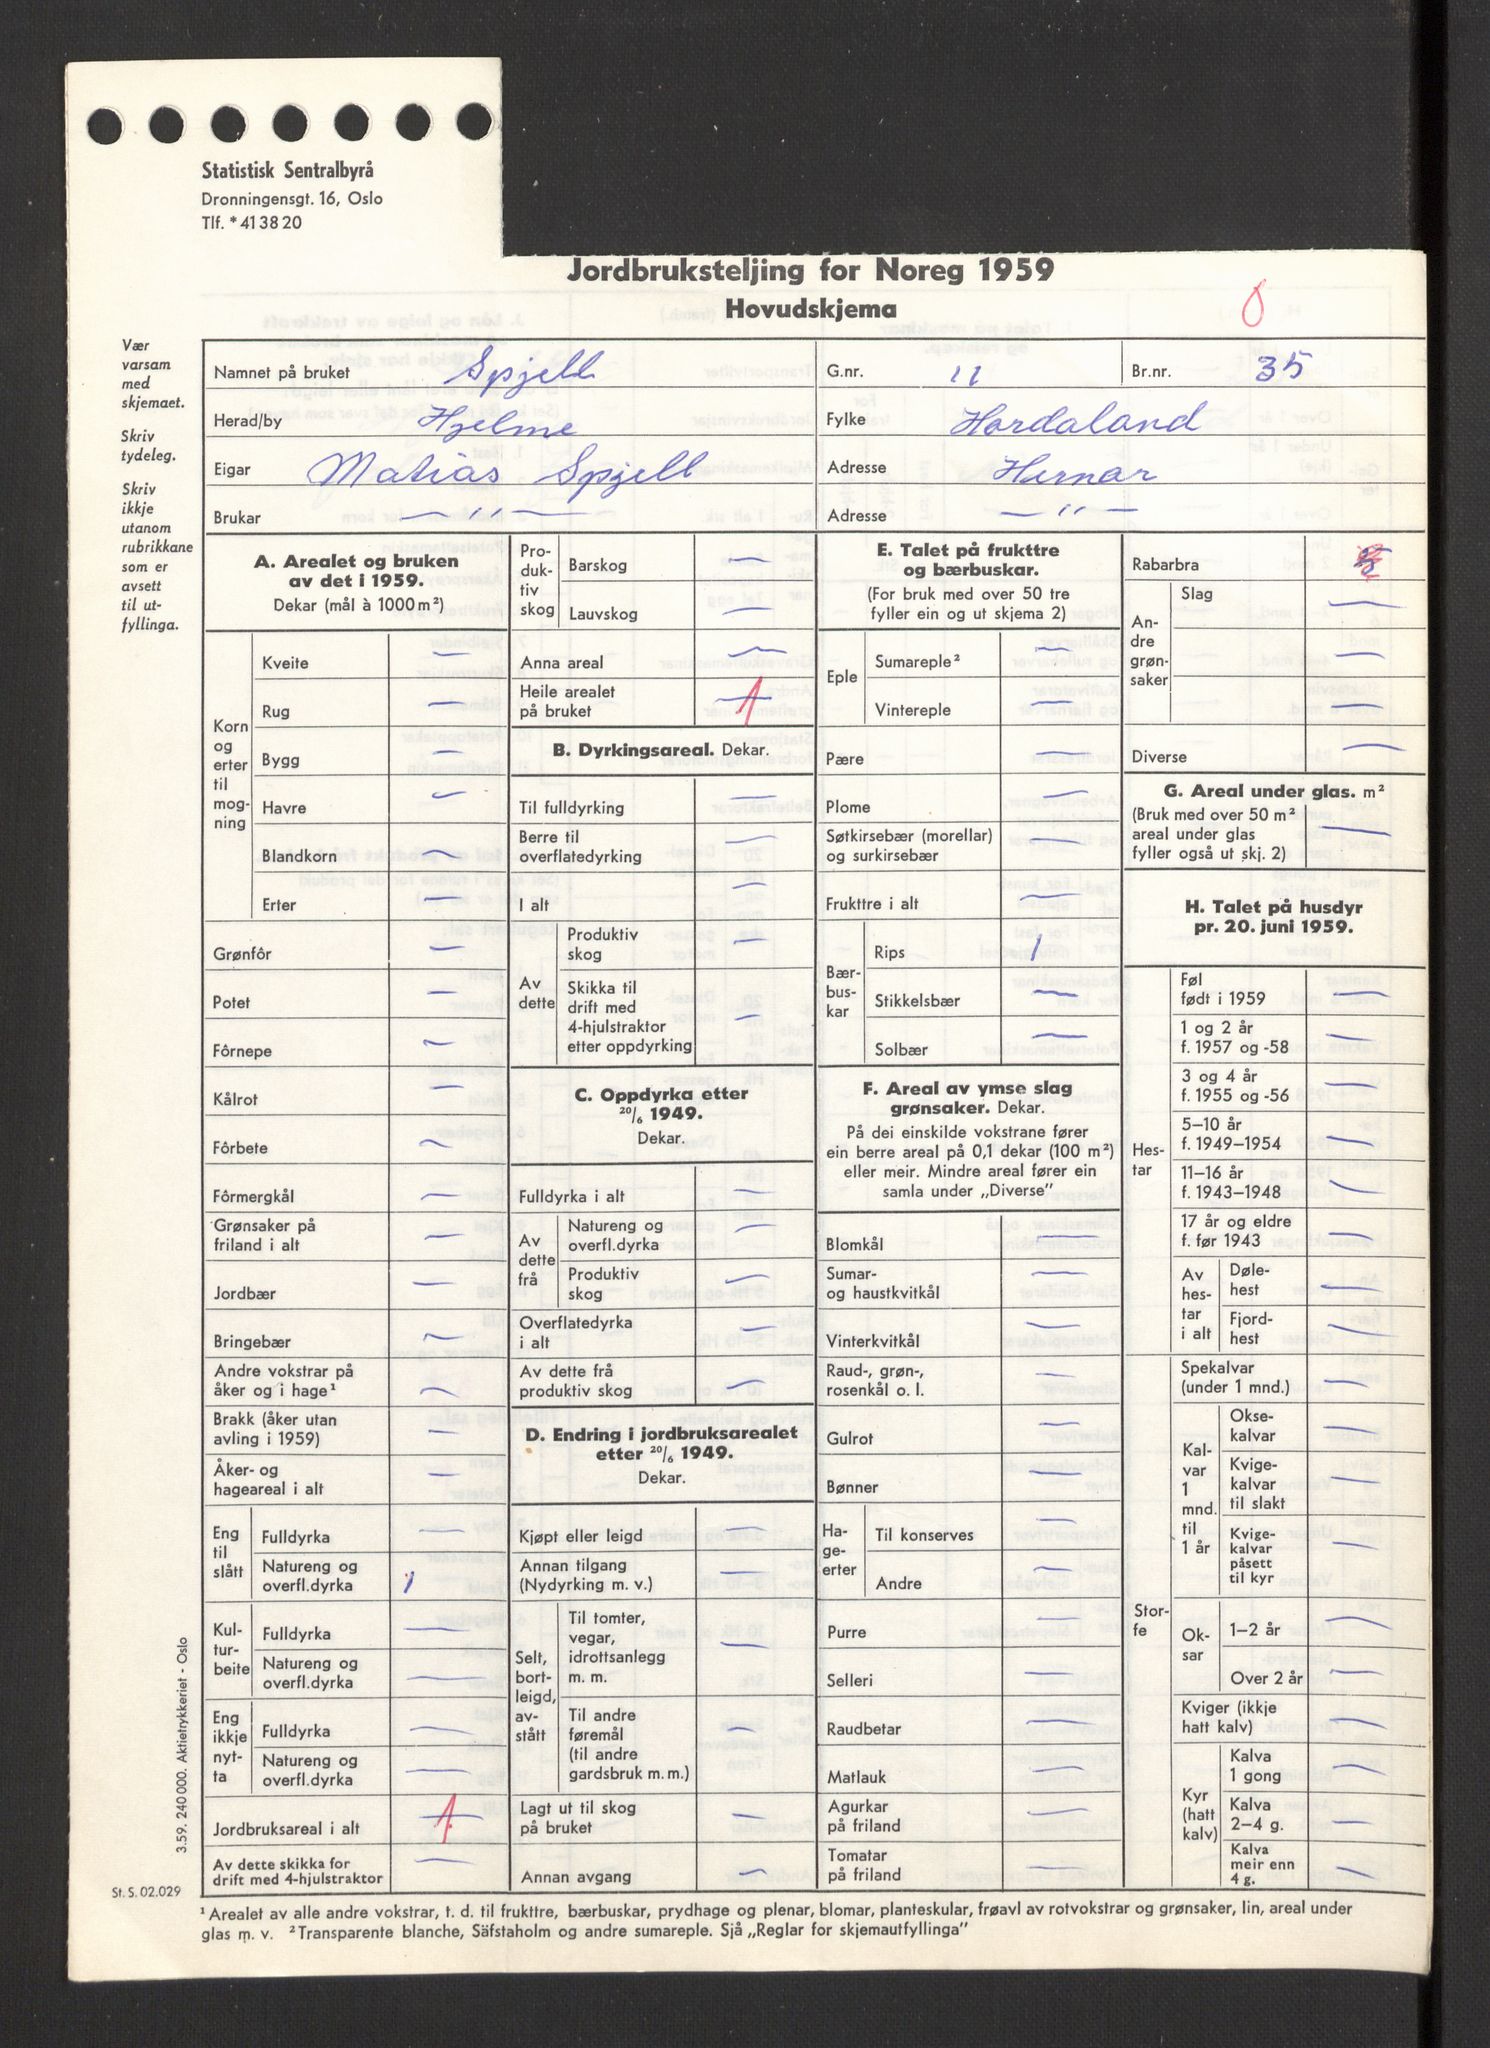 Statistisk Sentralbyrå
Dronningensgt. 16, Oslo
Tlf. *41 38 20
Jordbruksteljing for Noreg 1959
Hovudskjema
0
Vær
varsam
med
skjemaet.
Skriv
tydeleg.
Skriv
ikkje
utanom
rubrikkane
som er
avsett
til ut-
fyllinga.
Namnet på bruket Spjell G.nr. 11 Br.nr. 35
Herad/by Hjelme Fylke Hordaland
Eigar Matias Spjell Adresse Hernar
Brukar — " — Adresse — " —
A. Arealet og bruken
av det i 1959.
Dekar (mål à 1000 m²)
Korn
og
erter
til
mog-
ning
Kveite —
Rug —
Bygg —
Havre —
Blandkorn —
Erter —
Grønfôr —
Potet —
Fôrnepe —
Kålrot —
Fôrbete —
Fôrmergkål —
Grønsaker på
friland i alt —
Jordbær —
Bringebær —
Andre vokstrar på
åker og i hage¹ —
Brakk (åker utan
avling i 1959) —
Åker- og
hageareal i alt —
Eng
til
slått
Fulldyrka —
Natureng og
overfl.dyrka 1
Kul-
tur-
beite
Fulldyrka —
Natureng og
overfl.dyrka —
Eng
ikkje
nyt-
ta
Fulldyrka —
Natureng og
overfl.dyrka —
Jordbruksareal i alt 1
Av dette skikka for
drift med 4-hjulstraktor —
Pro-
duk-
tiv
skog
Barskog —
Lauvskog —
Anna areal —
Heile arealet
på bruket 1
B. Dyrkingsareal. Dekar.
Til fulldyrking —
Berre til
overflatedyrking —
I alt —
Av
dette
Produktiv
skog —
Skikka til
drift med
4-hjulstraktor
etter oppdyrking —
C. Oppdyrka etter
20/6 1949.
Dekar.
Fulldyrka i alt —
Av
dette
frå
Natureng og
overfl.dyrka —
Produktiv
skog —
Overflatedyrka
i alt —
Av dette frå
produktiv skog —
D. Endring i jordbruksarealet
etter 20/6 1949.
Dekar.
Kjøpt eller leigd —
Annan tilgang
(Nydyrking m. v.) —
Selt,
bort-
leigd,
av-
stått
Til tomter,
vegar,
idrottsanlegg
m. m. —
Til andre
føremål
(til andre
gardsbruk m. m.) —
Lagt ut til skog
på bruket —
Annan avgang —
E. Talet på frukttre
og bærbuskar.
(For bruk med over 50 tre
fyller ein og ut skjema 2)
Eple
Sumareple² —
Vintereple —
Pære —
Plome —
Søtkirsebær (morellar)
og surkirsebær —
Frukttre i alt —
Bær-
bus-
kar
Rips 1
Stikkelsbær —
Solbær —
F. Areal av ymse slag
grønsaker. Dekar.
På dei einskilde vokstrane fører
ein berre areal på 0,1 dekar (100 m²)
eller meir. Mindre areal fører ein
samla under „Diverse”
Blomkål —
Sumar-
og haustkvitkål —
Vinterkvitkål —
Raud-, grøn-,
rosenkål o. l. —
Gulrot —
Bønner —
Ha-
ge-
erter
Til konserves —
Andre —
Purre —
Selleri —
Raudbetar —
Matlauk —
Agurkar
på friland —
Tomatar
på friland —
Rabarbra
An-
dre
grøn-
saker
Slag —
—
—
Diverse —
G. Areal under glas. m²
(Bruk med over 50 m²
areal under glas
fyller også ut skj. 2) —
H. Talet på husdyr
pr. 20. juni 1959.
Hes-
tar
Føl
født i 1959 —
1 og 2 år
f. 1957 og -58 —
3 og 4 år
f. 1955 og -56 —
5–10 år
f. 1949–1954 —
11–16 år
f. 1943–1948 —
17 år og eldre
f. før 1943 —
Av
hes-
tar
i alt
Døle-
hest —
Fjord-
hest —
Stor-
fe
Spekalvar
(under 1 mnd.) —
Kal-
var
1
mnd.
til
1 år
Okse-
kalvar —
Kvige-
kalvar
til slakt —
Kvige-
kalvar
påsett
til kyr —
Ok-
sar
1–2 år —
Over 2 år —
Kviger (ikkje
hatt kalv) —
Kyr
(hatt
kalv)
Kalva
1 gong —
Kalva
2–4 g. —
Kalva
meir enn
4 g. —
3.59. 240 000. Aktietrykkeriet - Oslo
St. S. 02.029
¹ Arealet av alle andre vokstrar, t. d. til frukttre, bærbuskar, prydhage og plenar, blomar, planteskular, frøavl av rotvokstrar og grønsaker, lin, areal under
glas m. v. ² Transparente blanche, Säfstaholm og andre sumareple. Sjå „Reglar for skjemautfyllinga”